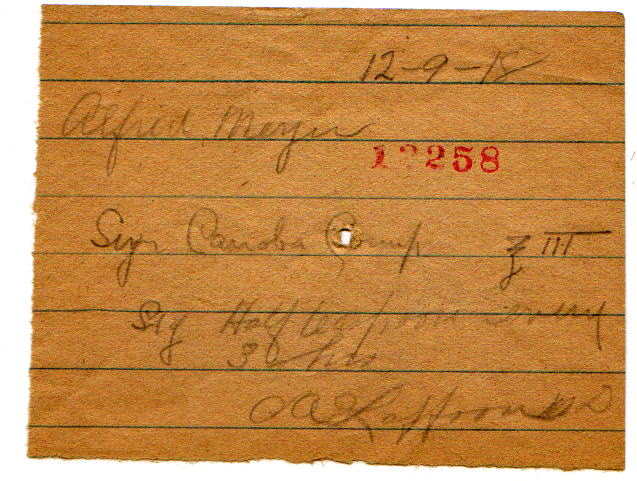 12-9-18
Alfred Meyer
258
Syr Comp ʒ III
Sig Half teaspoon every
3 hrs